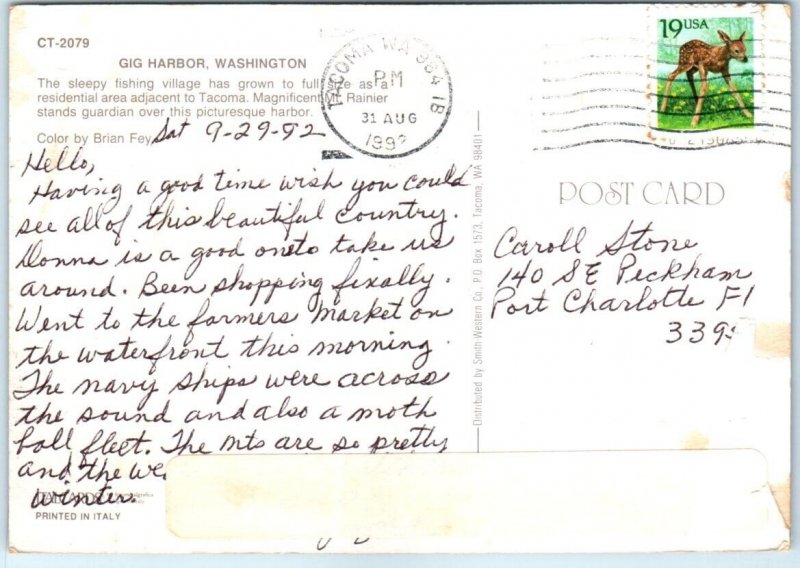 CT-2079
GIG HARBOR, WASHINGTON
The sleepy fishing village has grown to full size as a
residential area adjacent to Tacoma. Magnificent Mt. Rainier
stands guardian over this picturesque harbor.
Color by Brian Fey
Sat 9-29-92
Hello,
Having a good time wish you could
see all of this beautiful country.
Donna is a good one to take us
around. Been shopping fixally.
Went to the farmers market on
the waterfront this morning.
The navy ships were across
the sound and also a moth
ball fleet. The mts are so pretty
and the we
winter.
PRINTED IN ITALY
Distributed by Smith Western Co., P.O. Box 1573, Tacoma, WA 98401
TACOMA WA 984 1B
PM
31 AUG
1992
19 USA
POST CARD
Caroll Stone
140 SE Peckham
Port Charlotte Fl
339